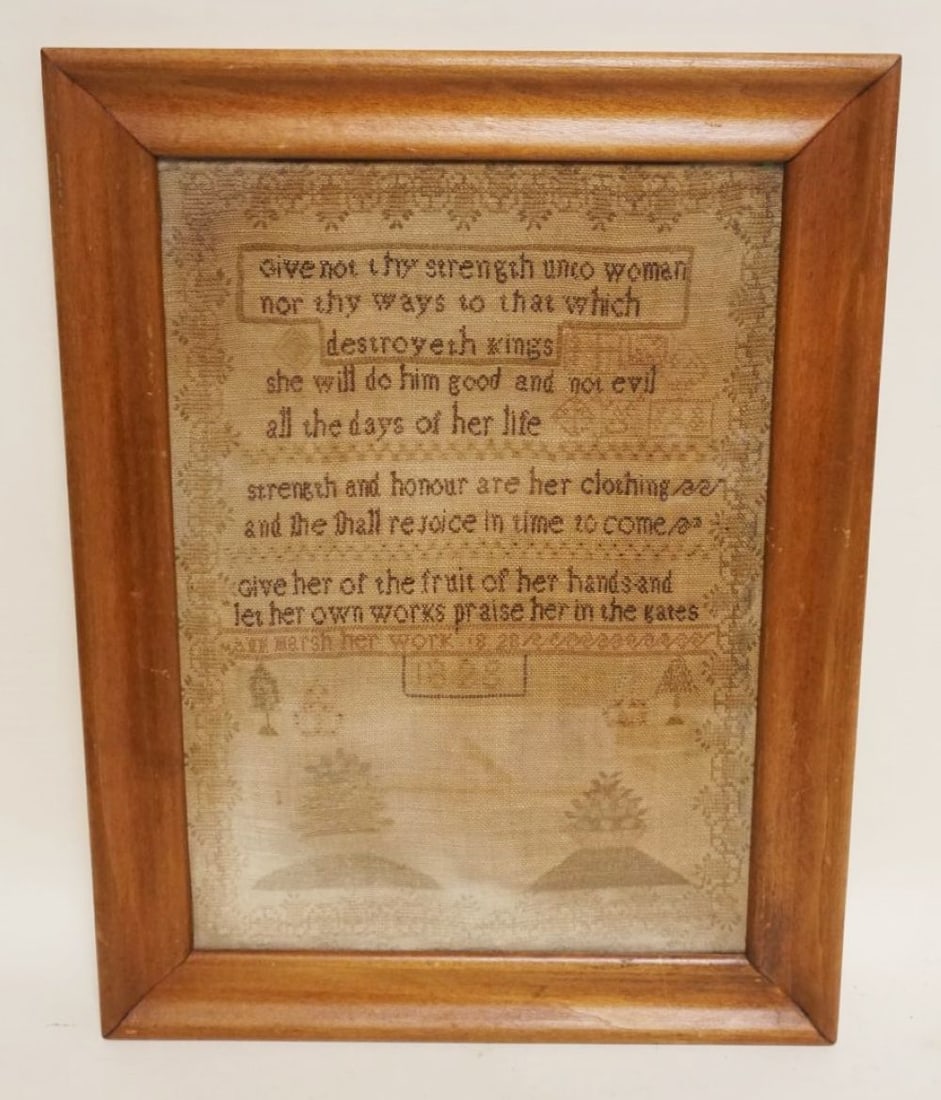 Give not thy strength unto woman
nor thy ways to that which
destroyeth kings
she will do him good and not evil
all the days of her life
strength and honour are her clothing
and she shall rejoice in time to come
Give her of the fruit of her hands and
let her own works praise her in the gates
ann marsh her work 1828
1828